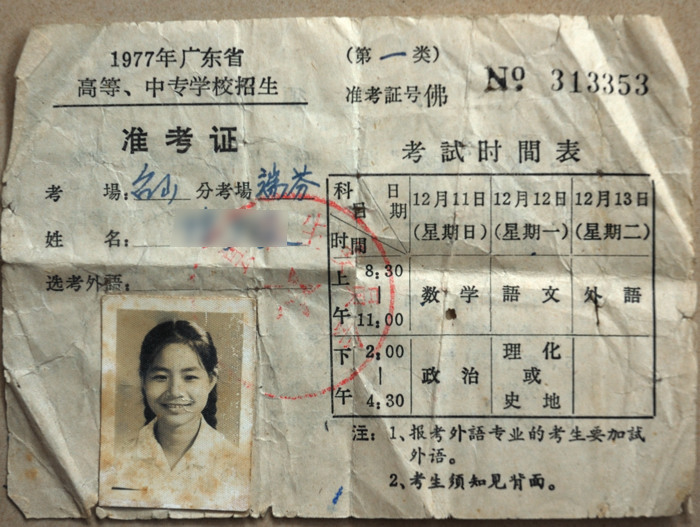 1977年广东省
高等、中专学校招生
准考证
考 場:台山 分考場 端芬
姓 名:
选考外語:
(第一类)
准考証号佛 No. 313353
考試时間表
科目 日期 时間
12月11日 12月12日 12月13日
(星期日) (星期一) (星期二)
上午 8:30 | 11:00 数学 語文 外語
下午 2:00 | 4:30 政治 理化或史地
注: 1、报考外語专业的考生要加試
外语。
2、考生须知见背面。